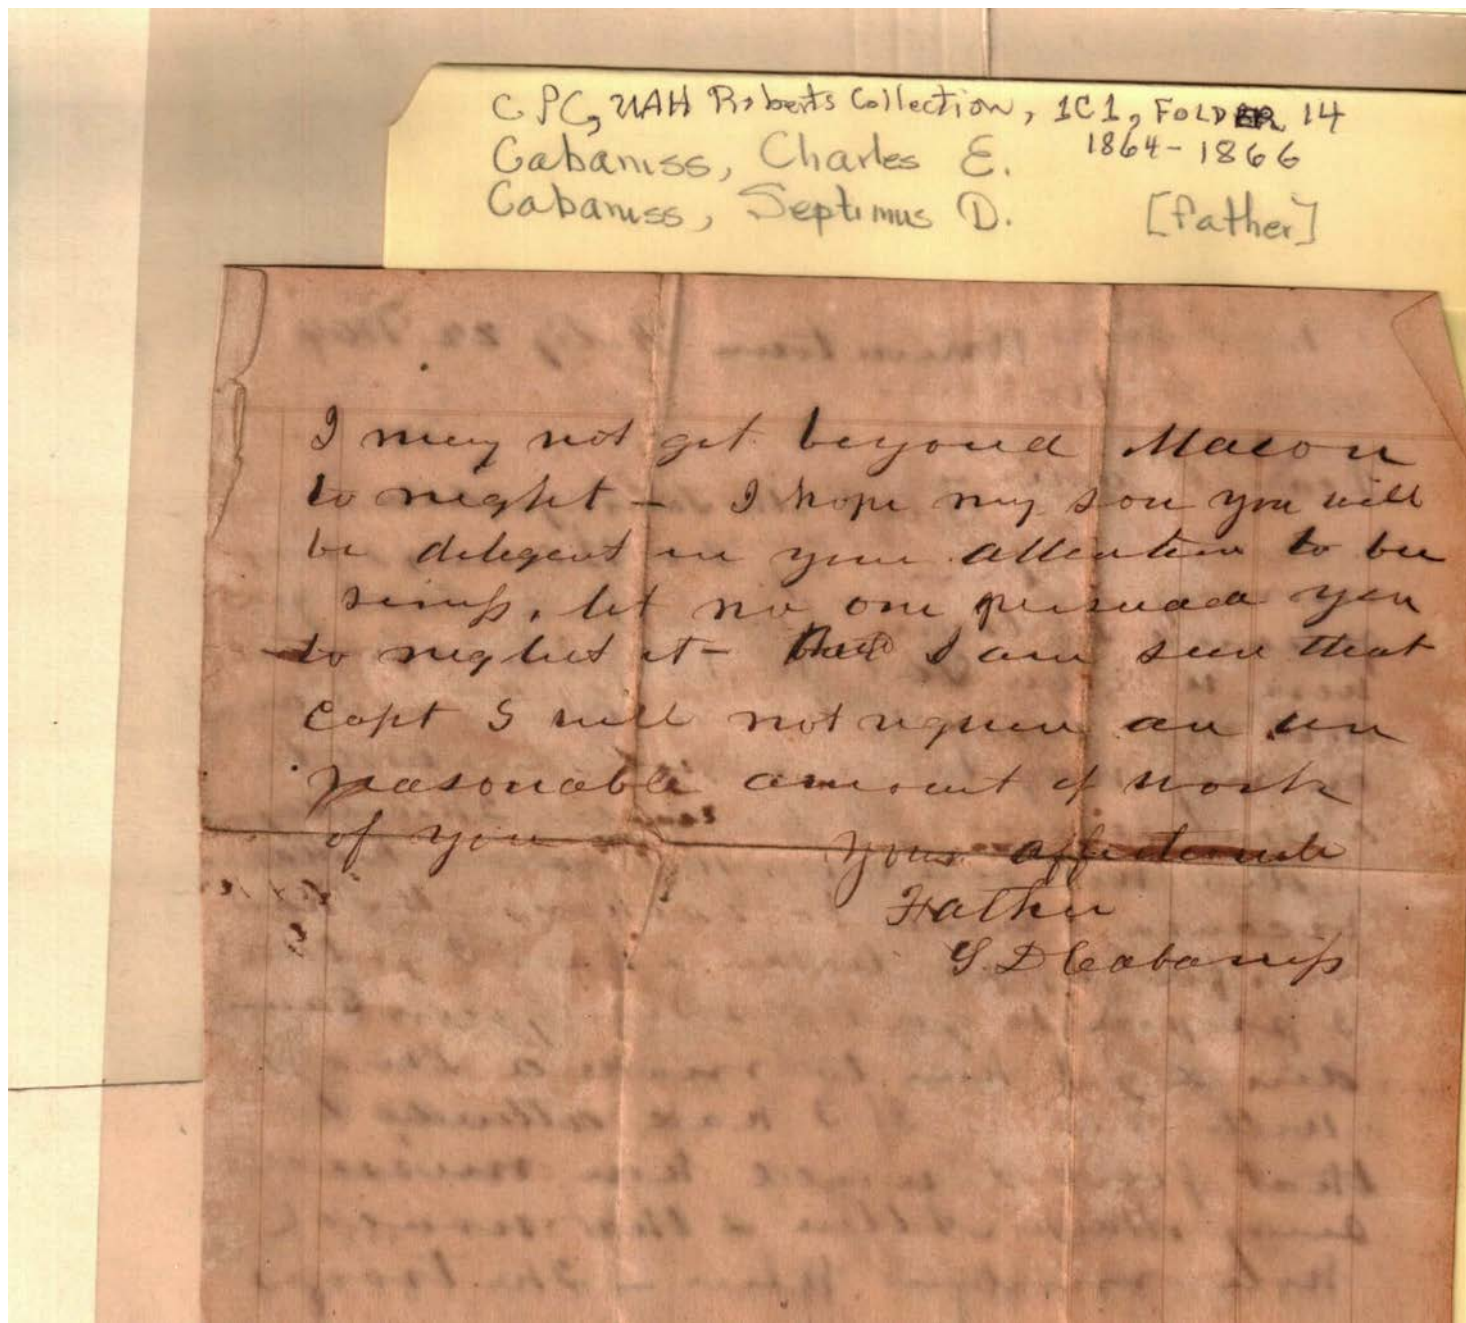 CPC, UAH Roberts Collection, 1C1, FOLDER 14
Cabaniss, Charles E. 1864-1866
Cabaniss, Septimus D. [father]
I may not get beyond Macon
to night - I hope my son you will
be diligent in your attention to bu
siness, let no one persuade you
to neglect it - I am sure that
Capt S will not require an un
reasonable amount of work
of you
Your affectionate
Father
S. D Cabaniss